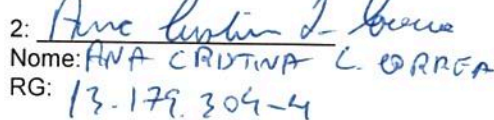 2: Ana Cristina L. Correa
Nome: ANA CRISTINA L. CORREA
RG: 13.179.304-4